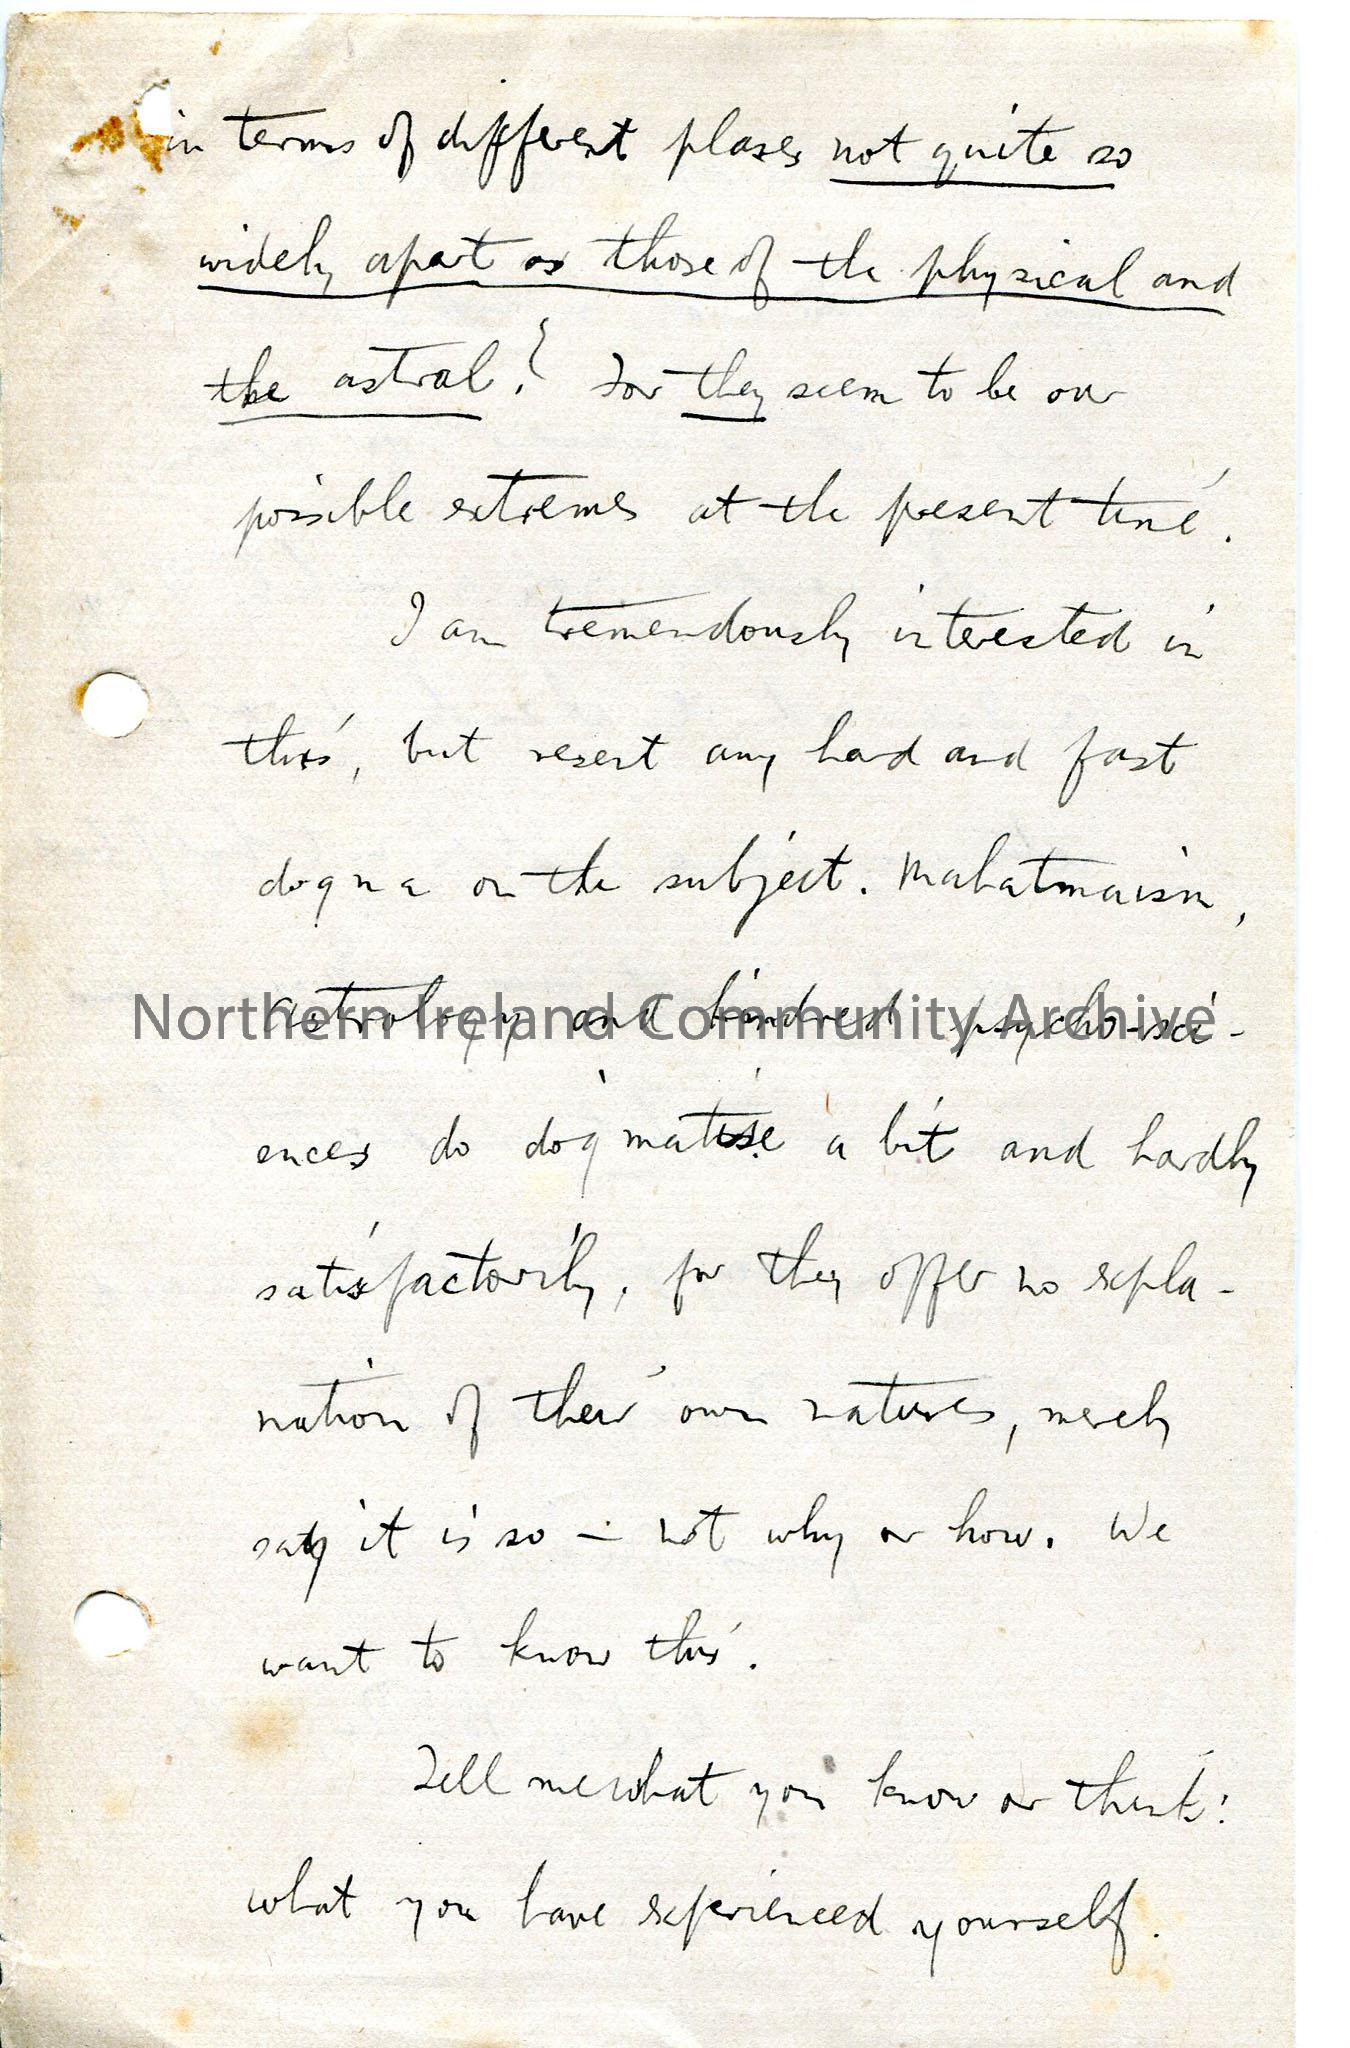 in terms of different planes not quite so
widely apart as those of the physical and
the astral? For they seem to be our
possible extremes at the present time.
I am tremendously interested in
this, but resent any hard and fast
dogma on the subject. Mahatmaism,
astrology and kindred psycho-sci-
Northern Ireland Community Archive
ences do dogmatise a bit and hardly
satisfactorily, for they offer no expla-
nation of their own natures, merely
say it is so – not why or how. We
want to know this.
Tell me what you know or think:
what you have experienced yourself.